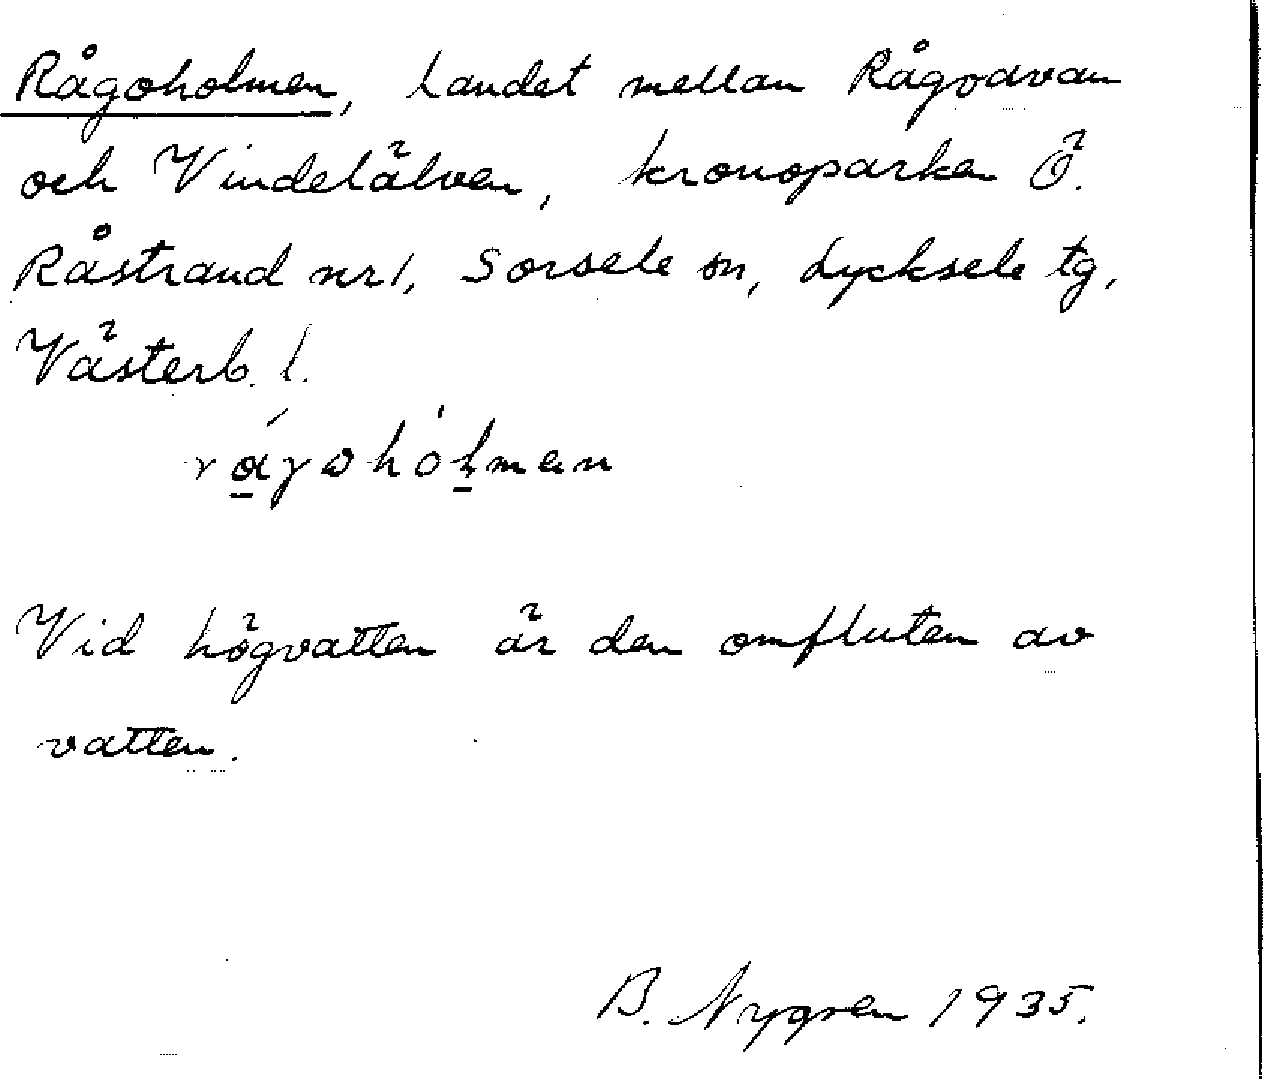 Rågoholmen, Landet mellan Rågoavan
och Vindelälven, kronoparken Ö.
Råstrand nr 1, Sorsele sn, Lycksele tg,
Västerb. l.
Vid högvatten är den omfluten av
vatten.
B. Nygren 1935.